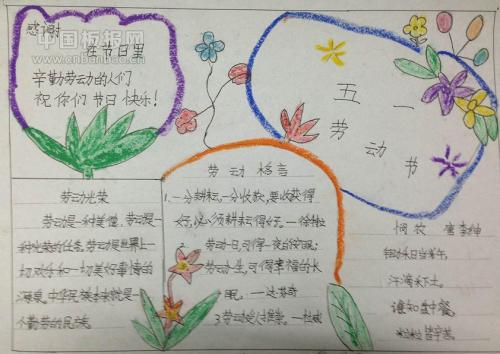 感谢
在节日里
辛勤劳动的人们
祝你们节日快乐!
中国板报网
www.cnbanbao.cn
五一
劳动节
劳动光荣
劳动是一种美德,劳动是一
种光荣的任务,劳动是世界上一
切欢乐和一切美好事情的
源泉,中华民族本来就是一
个勤劳的民族。
劳动格言
1.一分耕耘,一分收获,要收获得
好,必须耕耘得好。一徐特立
2.劳动一日,可得一夜的安眠;
劳动一生,可得幸福的长
眠。一达芬奇
3.劳动
悯农 唐李绅
锄禾日当午,
汗滴禾下土。
谁知盘中餐,
粒粒皆辛苦。